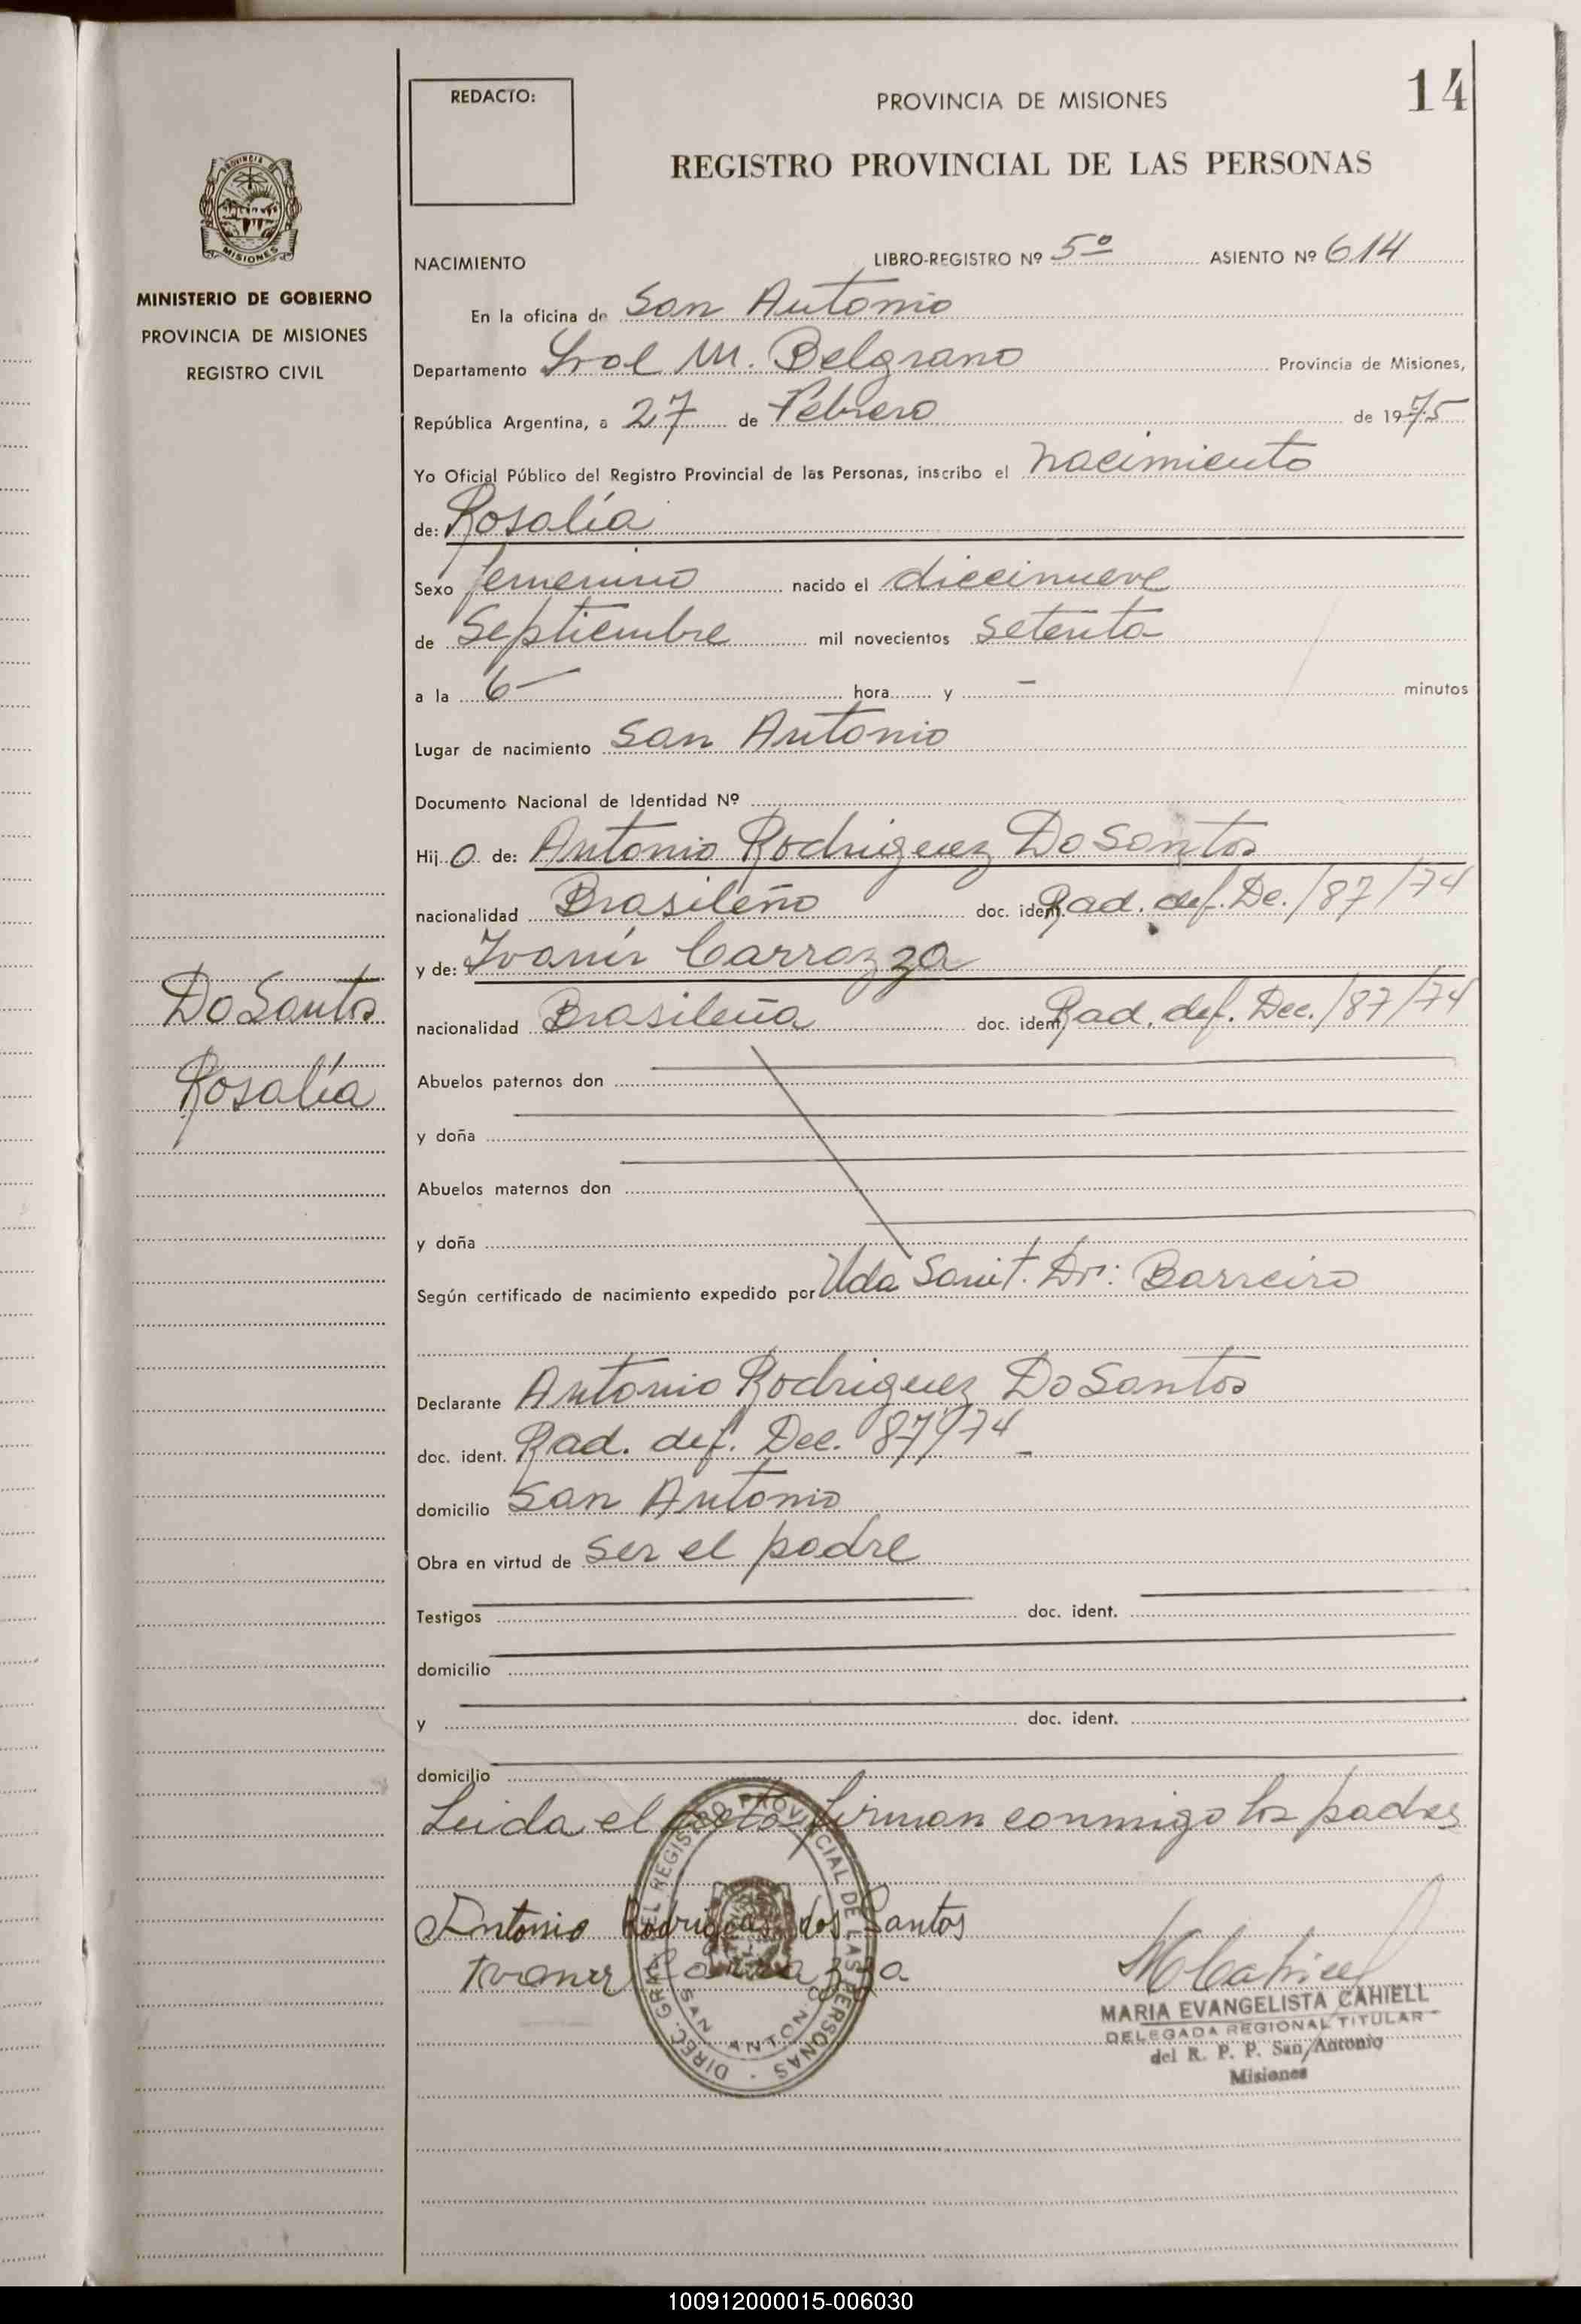 14
REDACTO:
PROVINCIA DE MISIONES
REGISTRO PROVINCIAL DE LAS PERSONAS
PROVINCIA
MISIONES
MINISTERIO DE GOBIERNO
PROVINCIA DE MISIONES
REGISTRO CIVIL
NACIMIENTO LIBRO-REGISTRO Nº 5º ASIENTO Nº 614
En la oficina de San Antonio
Departamento Gral M. Belgrano Provincia de Misiones,
República Argentina, a 27 de Febrero de 1975
Yo Oficial Público del Registro Provincial de las Personas, inscribo el nacimiento
de: Rosalía
Sexo femenino nacido el diecinueve
de Septiembre mil novecientos setenta
a la 6- hora y - minutos
Lugar de nacimiento San Antonio
Documento Nacional de Identidad Nº
Hij o de: Antonio Rodriguez Do Santos
nacionalidad Brasileño doc. ident. Rad. def. De. /87/74
y de: Ivanir Carrozza
nacionalidad Brasileña doc. ident. Rad. def. Dec. /87/74
Do Santos
Rosalía
Abuelos paternos don
y doña
Abuelos maternos don
y doña
Según certificado de nacimiento expedido por Uda Sanit. Dr: Barreiro
Declarante Antonio Rodriguez Do Santos
doc. ident. Rad. def. Dec. 87/74 -
domicilio San Antonio
Obra en virtud de ser el padre
Testigos doc. ident.
domicilio
y doc. ident.
domicilio
Leida el acta firman conmigo los padres
Antonio Rodrigues dos Santos
Ivanir Carrazza
DIREC. GRAL. DEL REGISTRO PROVINCIAL DE LAS PERSONAS
SAN ANTONIO
MCahiell
MARIA EVANGELISTA CAHIELL
DELEGADA REGIONAL TITULAR
del R. P. P. San Antonio
Misiones
100912000015-006030